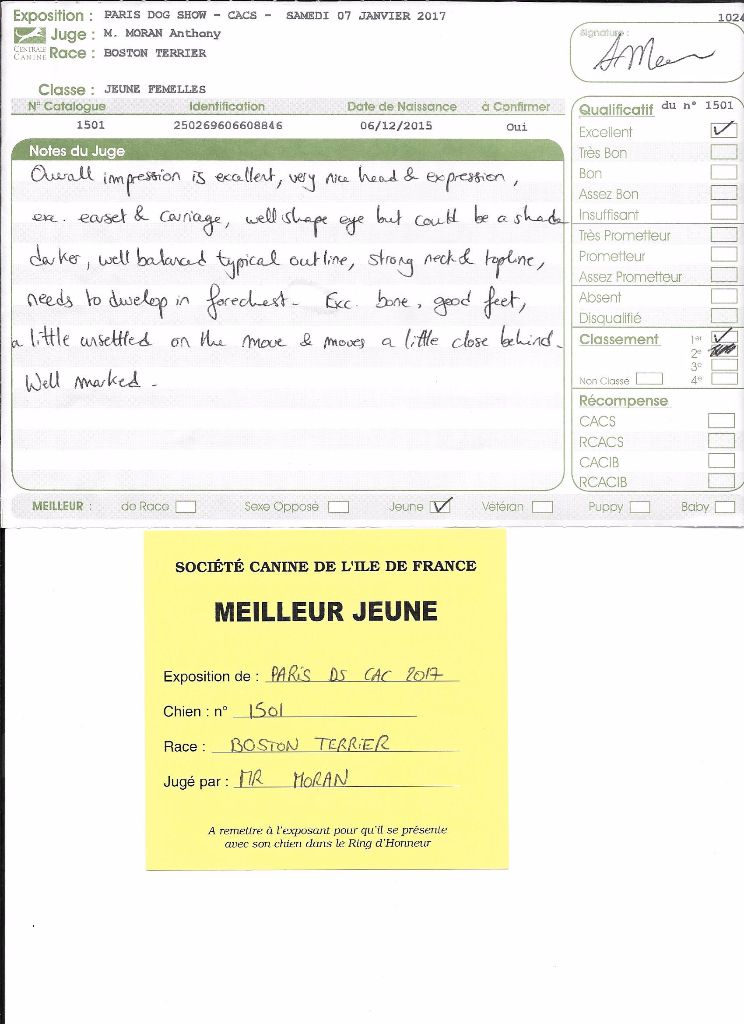 Exposition : PARIS DOG SHOW - CACS - SAMEDI 07 JANVIER 2017
1024
Juge : M. MORAN Anthony
CENTRALE CANINE
Race : BOSTON TERRIER
Signature :
Classe : JEUNE FEMELLES
N° Catalogue Identification Date de Naissance à Confirmer
1501 250269606608846 06/12/2015 Oui
Notes du Juge
Overall impression is excellent, very nice head & expression,
exc. earset & carriage, well shape eye but could be a shade
darker, well balanced typical outline, strong neck & topline,
needs to develop in forechest - Exc. bone, good feet,
a little unsettled on the move & moves a little close behind -
Well marked -
Qualificatif du n° 1501
Excellent
Très Bon
Bon
Assez Bon
Insuffisant
Très Prometteur
Prometteur
Assez Prometteur
Absent
Disqualifié
Classement 1er
2e
3e
Non Classé 4e
Récompense
CACS
RCACS
CACIB
RCACIB
MEILLEUR : de Race Sexe Opposé Jeune Vétéran Puppy Baby
SOCIÉTÉ CANINE DE L'ILE DE FRANCE
MEILLEUR JEUNE
Exposition de : PARIS DS CAC 2017
Chien : n° 1501
Race : BOSTON TERRIER
Jugé par : MR MORAN
A remettre à l'exposant pour qu'il se présente
avec son chien dans le Ring d'Honneur